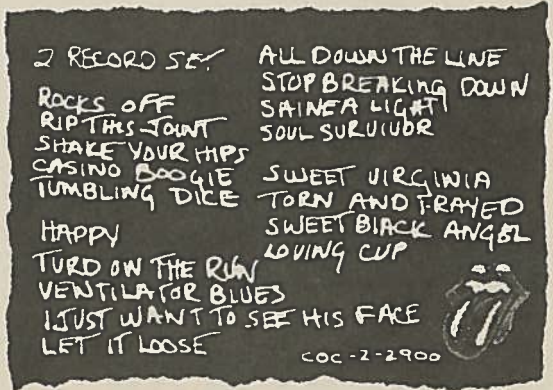 2 RECORD SET
ROCKS OFF
RIP THIS JOINT
SHAKE YOUR HIPS
CASINO BOOGIE
TUMBLING DICE
HAPPY
TURD ON THE RUN
VENTILATOR BLUES
I JUST WANT TO SEE HIS FACE
LET IT LOOSE
ALL DOWN THE LINE
STOP BREAKING DOWN
SHINE A LIGHT
SOUL SURVIVOR
SWEET VIRGINIA
TORN AND FRAYED
SWEET BLACK ANGEL
LOVING CUP
COC-2-2900